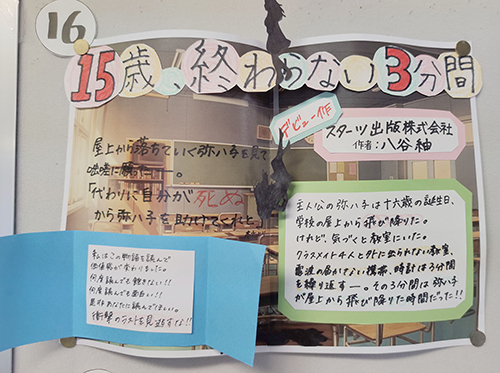 16
15歳、終わらない3分間
デビュー作
スターツ出版株式会社
作者:八谷紬
屋上から落ちていく弥八子を見て
咄嗟に願った――。
「代わりに自分が死ぬ
から弥八子を助けてくれと」
主人公の弥八子は十六歳の誕生日、
学校の屋上から飛び降りた。
けれど、気づくと教室にいた。
クラスメイト4人と外に出られない教室、
電波の届かない携帯、時計は3分間
を繰り返す―。その3分間は弥八子
が屋上から飛び降りた時間だった!!
私はこの物語を読んで
価値観が変わりました。
何度読んでも飽きない!!
何度読んでも面白い!!
是非あなたに読んでほしい。
衝撃のラストを見逃すな!!